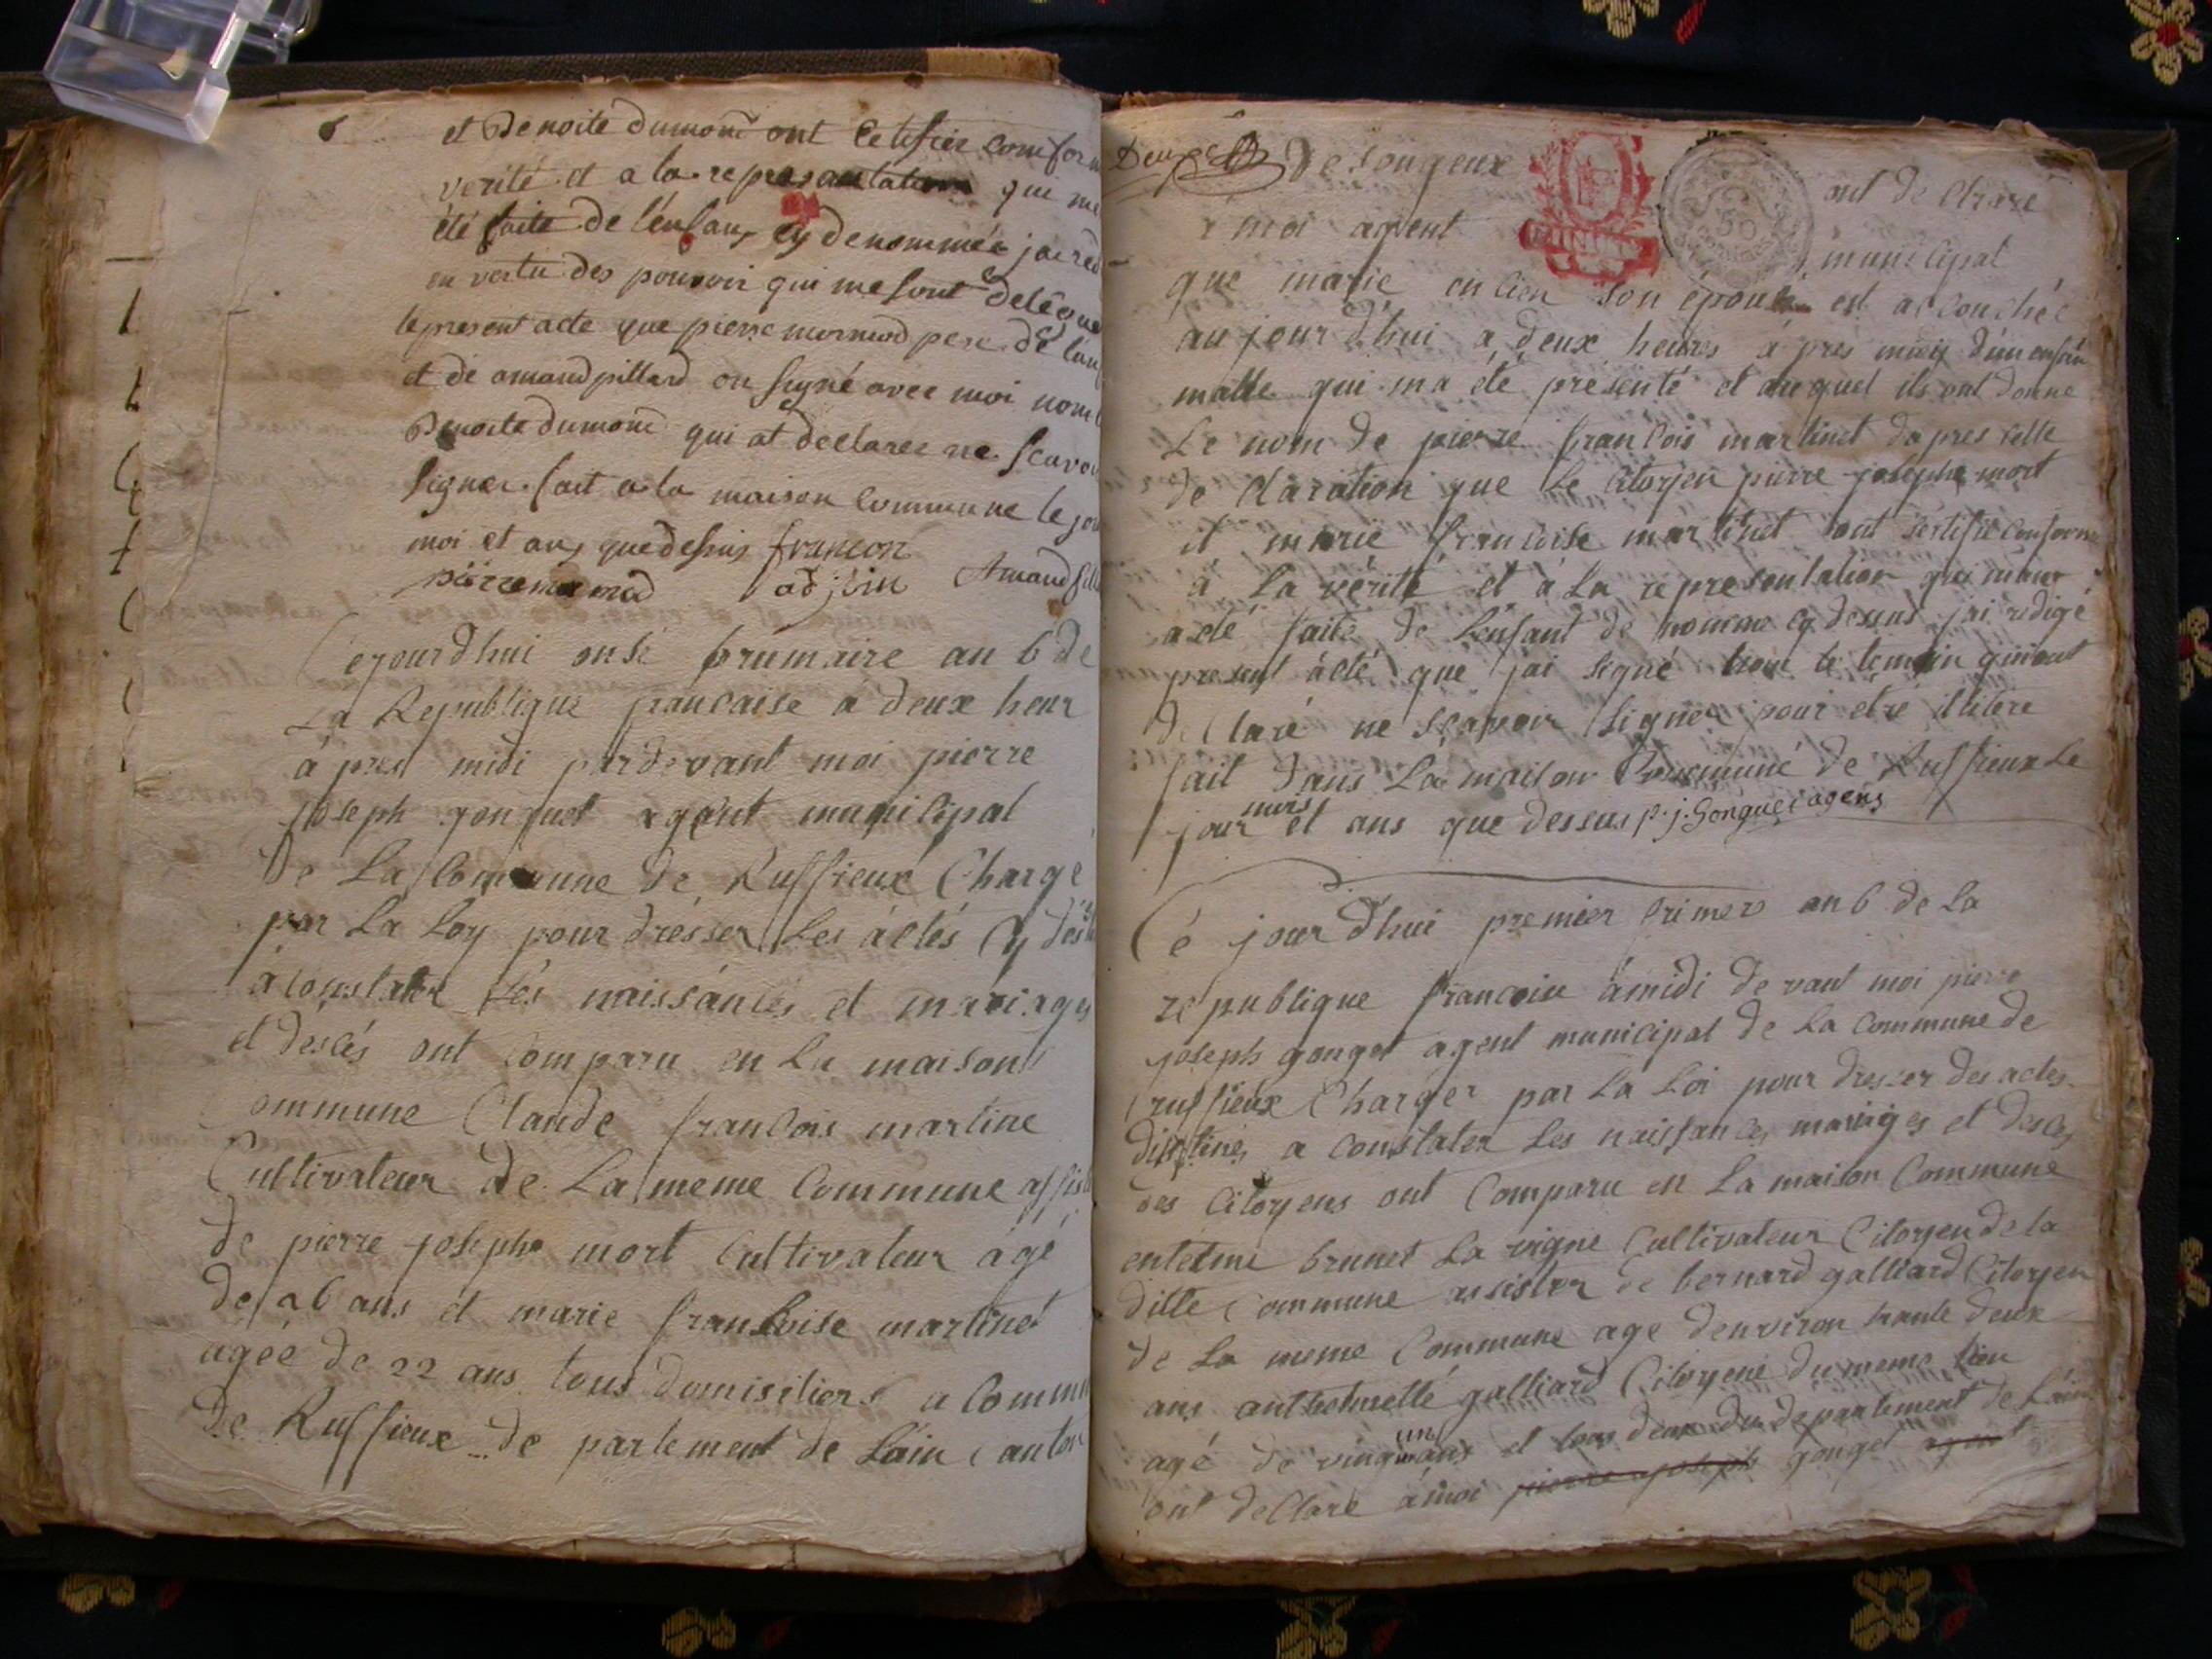 et Benoite dumond ont Cetifier Conform
verité et a la represantation que me
été faite de l'enfan, cy denommée jai red
en vertu des pouvoir qui me sont deleque
le present acte que pierre mormod pere de l'an
et de amand pillard on signé avec moi nom
Benoite dumond qui at declaree ne scavo
signer. fait a la maison Commune le jou
moi et an, que dessus françon
pierre mormod adjoin Amand
Cejourdhui onse brumaire an 6 de
La Republique francaise a deux heur
á pres midi pardevant moi pierre
joseph gonguet agent municipal
De La Commune de Ruffieux Chargé
par La Loy pour drésser Les áctés Cy dés
à Constater Lés naissánces et mariages
et déscés ont Comparu en La maison
ommune Claude francois martine
Cultivateur de La meme Commune assis
de pierre josephe mort Cultivateur ágé
de 26 ans et marie francoise martinet
agée de 22 ans tous domisiliers a Comm
de Ruffieux de partement de Láin Canton
de songeux
ont de Claré
á moi agent
municipal
que marie son épouse est accouchée
aujourd'hui a deux heures á pres midy d'un enfan
malle qui ma été présenté et auquel ils ont donne
Le nom de pierre francois martinet dapres celle
de Claration que Le Citoyen pierre josephe mort
et marie francoise martinet ont sertifié Conforme
á La vérité et á La representation qui maur
a été faite de Lenfant de nomme cy desus jai redigé
present ácté que jai signé non le temoin qui ont
de Claré ne sçavoir signer pour etre illitére
fait dans La maison Commune de Ruffieux Le
jour mois et ans que dessus p. j. Gonguet agens
Cé jourdhui premier frimer an 6 de La
republique francoise ámidi de vant moi pierre
joseph gonget agent municipal de La Commune de
ruffieux Charger par La Loi pour dresser des actes
distines a Constater Les naissances mariages et desces
des Citoyens ont Comparu en La maison Commune
brunet La vigne Cultivateur Citoyen de la
ditte Commune asister de bernard galliard Citoyen
de La meme Commune age denviron trante deux
ans galliard Citoyene du meme Lieu
agé de vingt un ans et tous deux du departement de Láin
ont deClare ámoi pierre joseph gonget agent